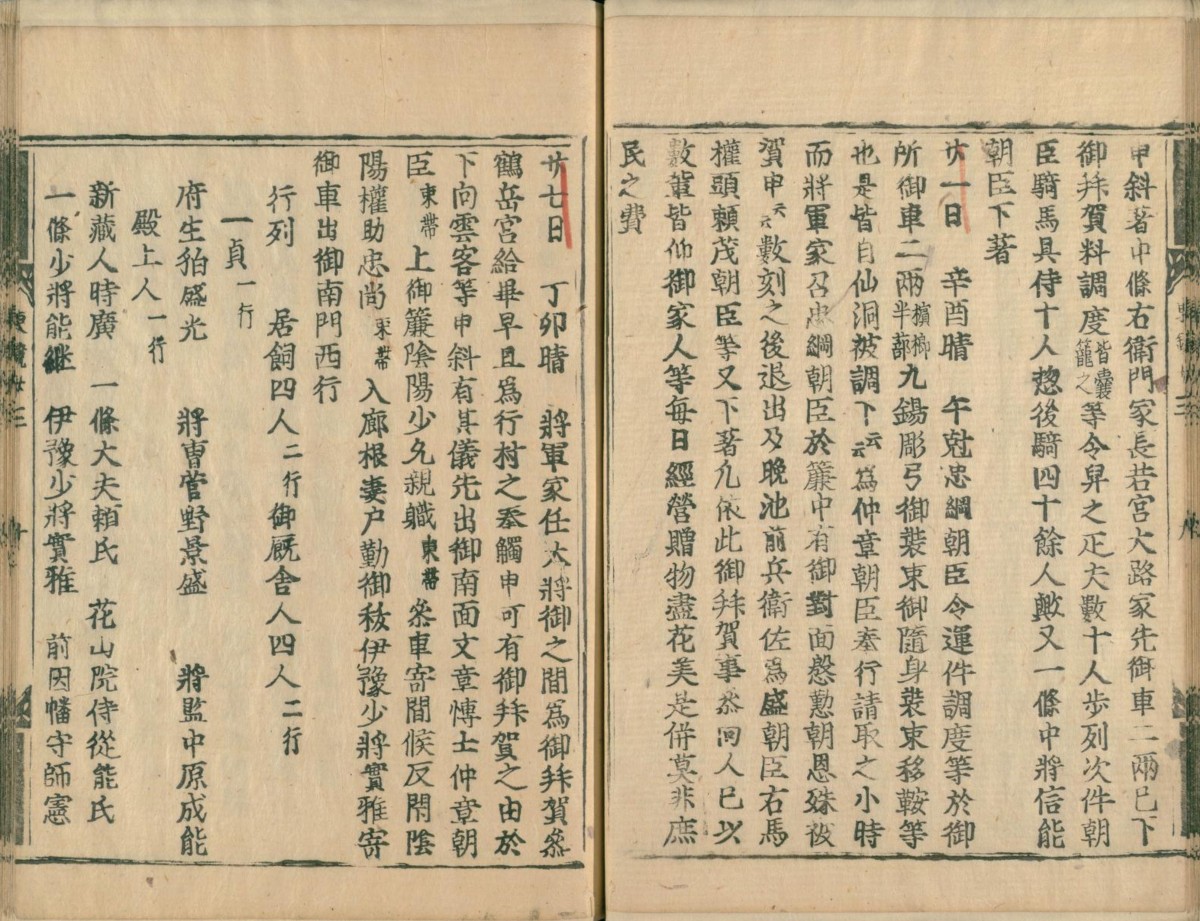 甲斜著中條右衛門家長若宮大路家先御車二兩已下
御拜賀料調度皆囊籠之等令舁之疋夫數十人歩列次件朝
臣騎馬具侍十人惣後騎四十餘人歟又一條中將信能
朝臣下著
廿一日 辛酉晴 午尅忠綱朝臣令運件調度等於御
所御車二兩檳榔半蔀九錫彫弓御裝束御隨身裝束移鞍等
也是皆自仙洞被調下云云爲仲章朝臣奉行請取之小時
而將軍家召忠綱朝臣於簾中有御對面慇懃朝恩殊被
賀申云云數刻之後退出及晩池前兵衛佐爲盛朝臣右馬
權頭頼茂朝臣等又下著凡依此御拜賀事參向人已以
數輩皆仰御家人等毎日經營贈物盡花美是併莫非庶
民之費
廿七日 丁卯晴 將軍家任大將御之間爲御拜賀參
鶴岳宮給畢早旦爲行村之奉觸申可有御拜賀之由於
下向雲客等申斜有其儀先出御南面文章愽士仲章朝
臣束帶上御簾陰陽少允親職束帶參車寄間候反閇陰
陽權助忠尚束帶入廊根妻户勤御秡伊豫少將實雅寄
御車出御南門西行
行列 居飼四人二行御厩舍人四人二行
一貞一行
府生狛盛光 將曹菅野景盛 將監中原成能
殿上人一行
新藏人時廣 一條大夫頼氏 花山院侍從能氏
一條少將能継 伊豫少將實雅 前因幡守師憲